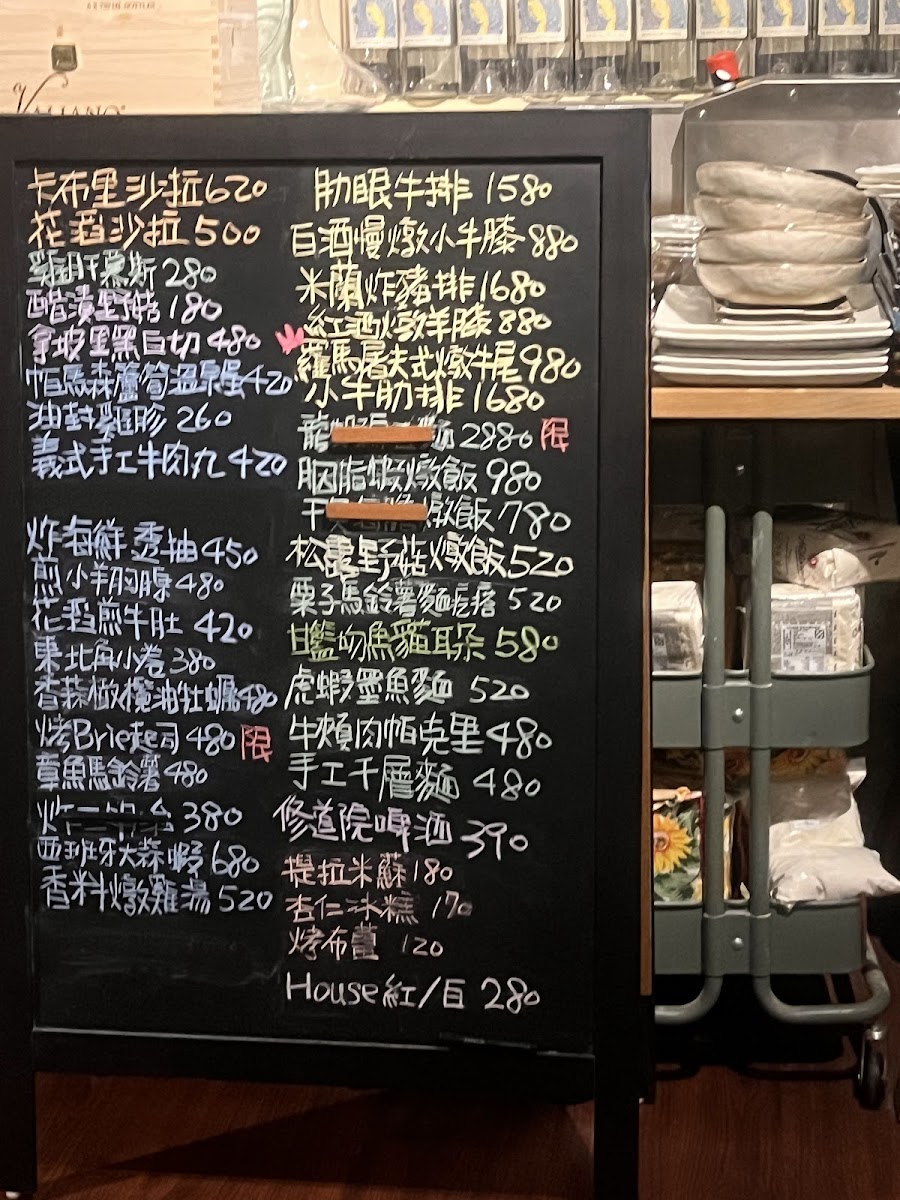 卡布里沙拉620
花椒沙拉500
雞肝慕斯 280
醋漬野菇 180
拿坡里黑白切 480
帕馬森蘆筍溫泉蛋420
油封雞胗 260
義式手工牛肉丸 420
炸海鮮透抽450
煎小羊胸腺 480
花椒煎牛肚 420
東北角小卷 380
香蒜橄欖油牡蠣480
烤Brie起司 480 限
章魚馬鈴薯 480
炸 380
西班牙大蒜蝦 680
香料燉雞湯 520
肋眼牛排 1580
白酒慢燉小牛膝 880
米蘭炸豬排 1680
紅酒燉羊膝 880
羅馬屠夫式燉牛尾 980
小牛肋排 1680
龍蝦 麵 2880 限
胭脂蝦燉飯 980
干貝 燉飯 780
松露野菇燉飯520
栗子馬鈴薯麵疙瘩 520
魩魚貓耳朵 580
虎蝦墨魚麵 520
牛頰肉帕克里480
手工千層麵 480
修道院啤酒 390
提拉米蘇 180
杏仁冰糕 170
烤布蕾 120
House紅/白 280